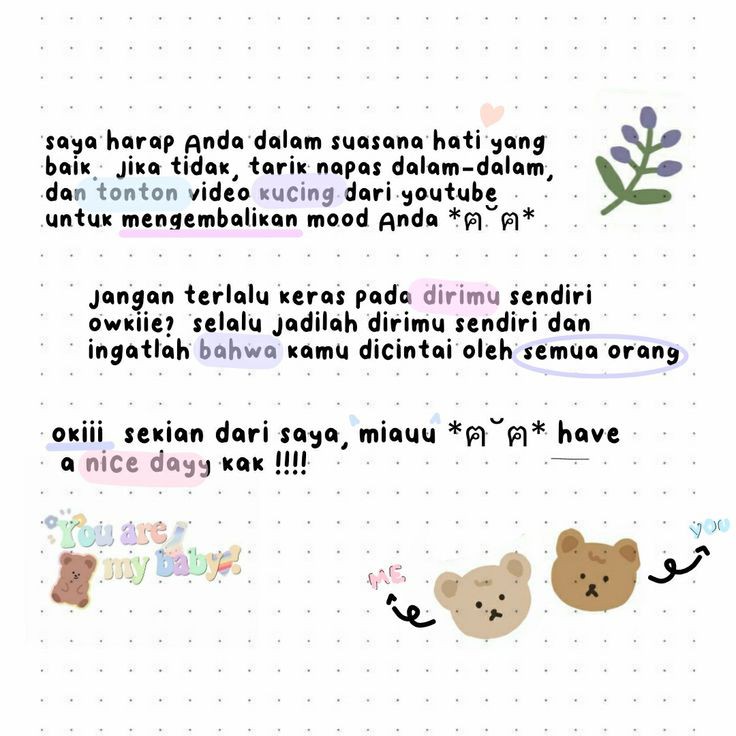 saya harap Anda dalam suasana hati yang
baik. Jika tidak, tarik napas dalam-dalam,
dan tonton video kucing dari youtube
untuk mengembalikan mood Anda *ฅ˘ฅ*
Jangan terlalu keras pada dirimu sendiri
owkiie? selalu jadilah dirimu sendiri dan
ingatlah bahwa kamu dicintai oleh semua orang
okiii sekian dari saya, miauu *ฅ˘ฅ* have
a nice dayy kak !!!!
You are
my baby!
ME
YOU